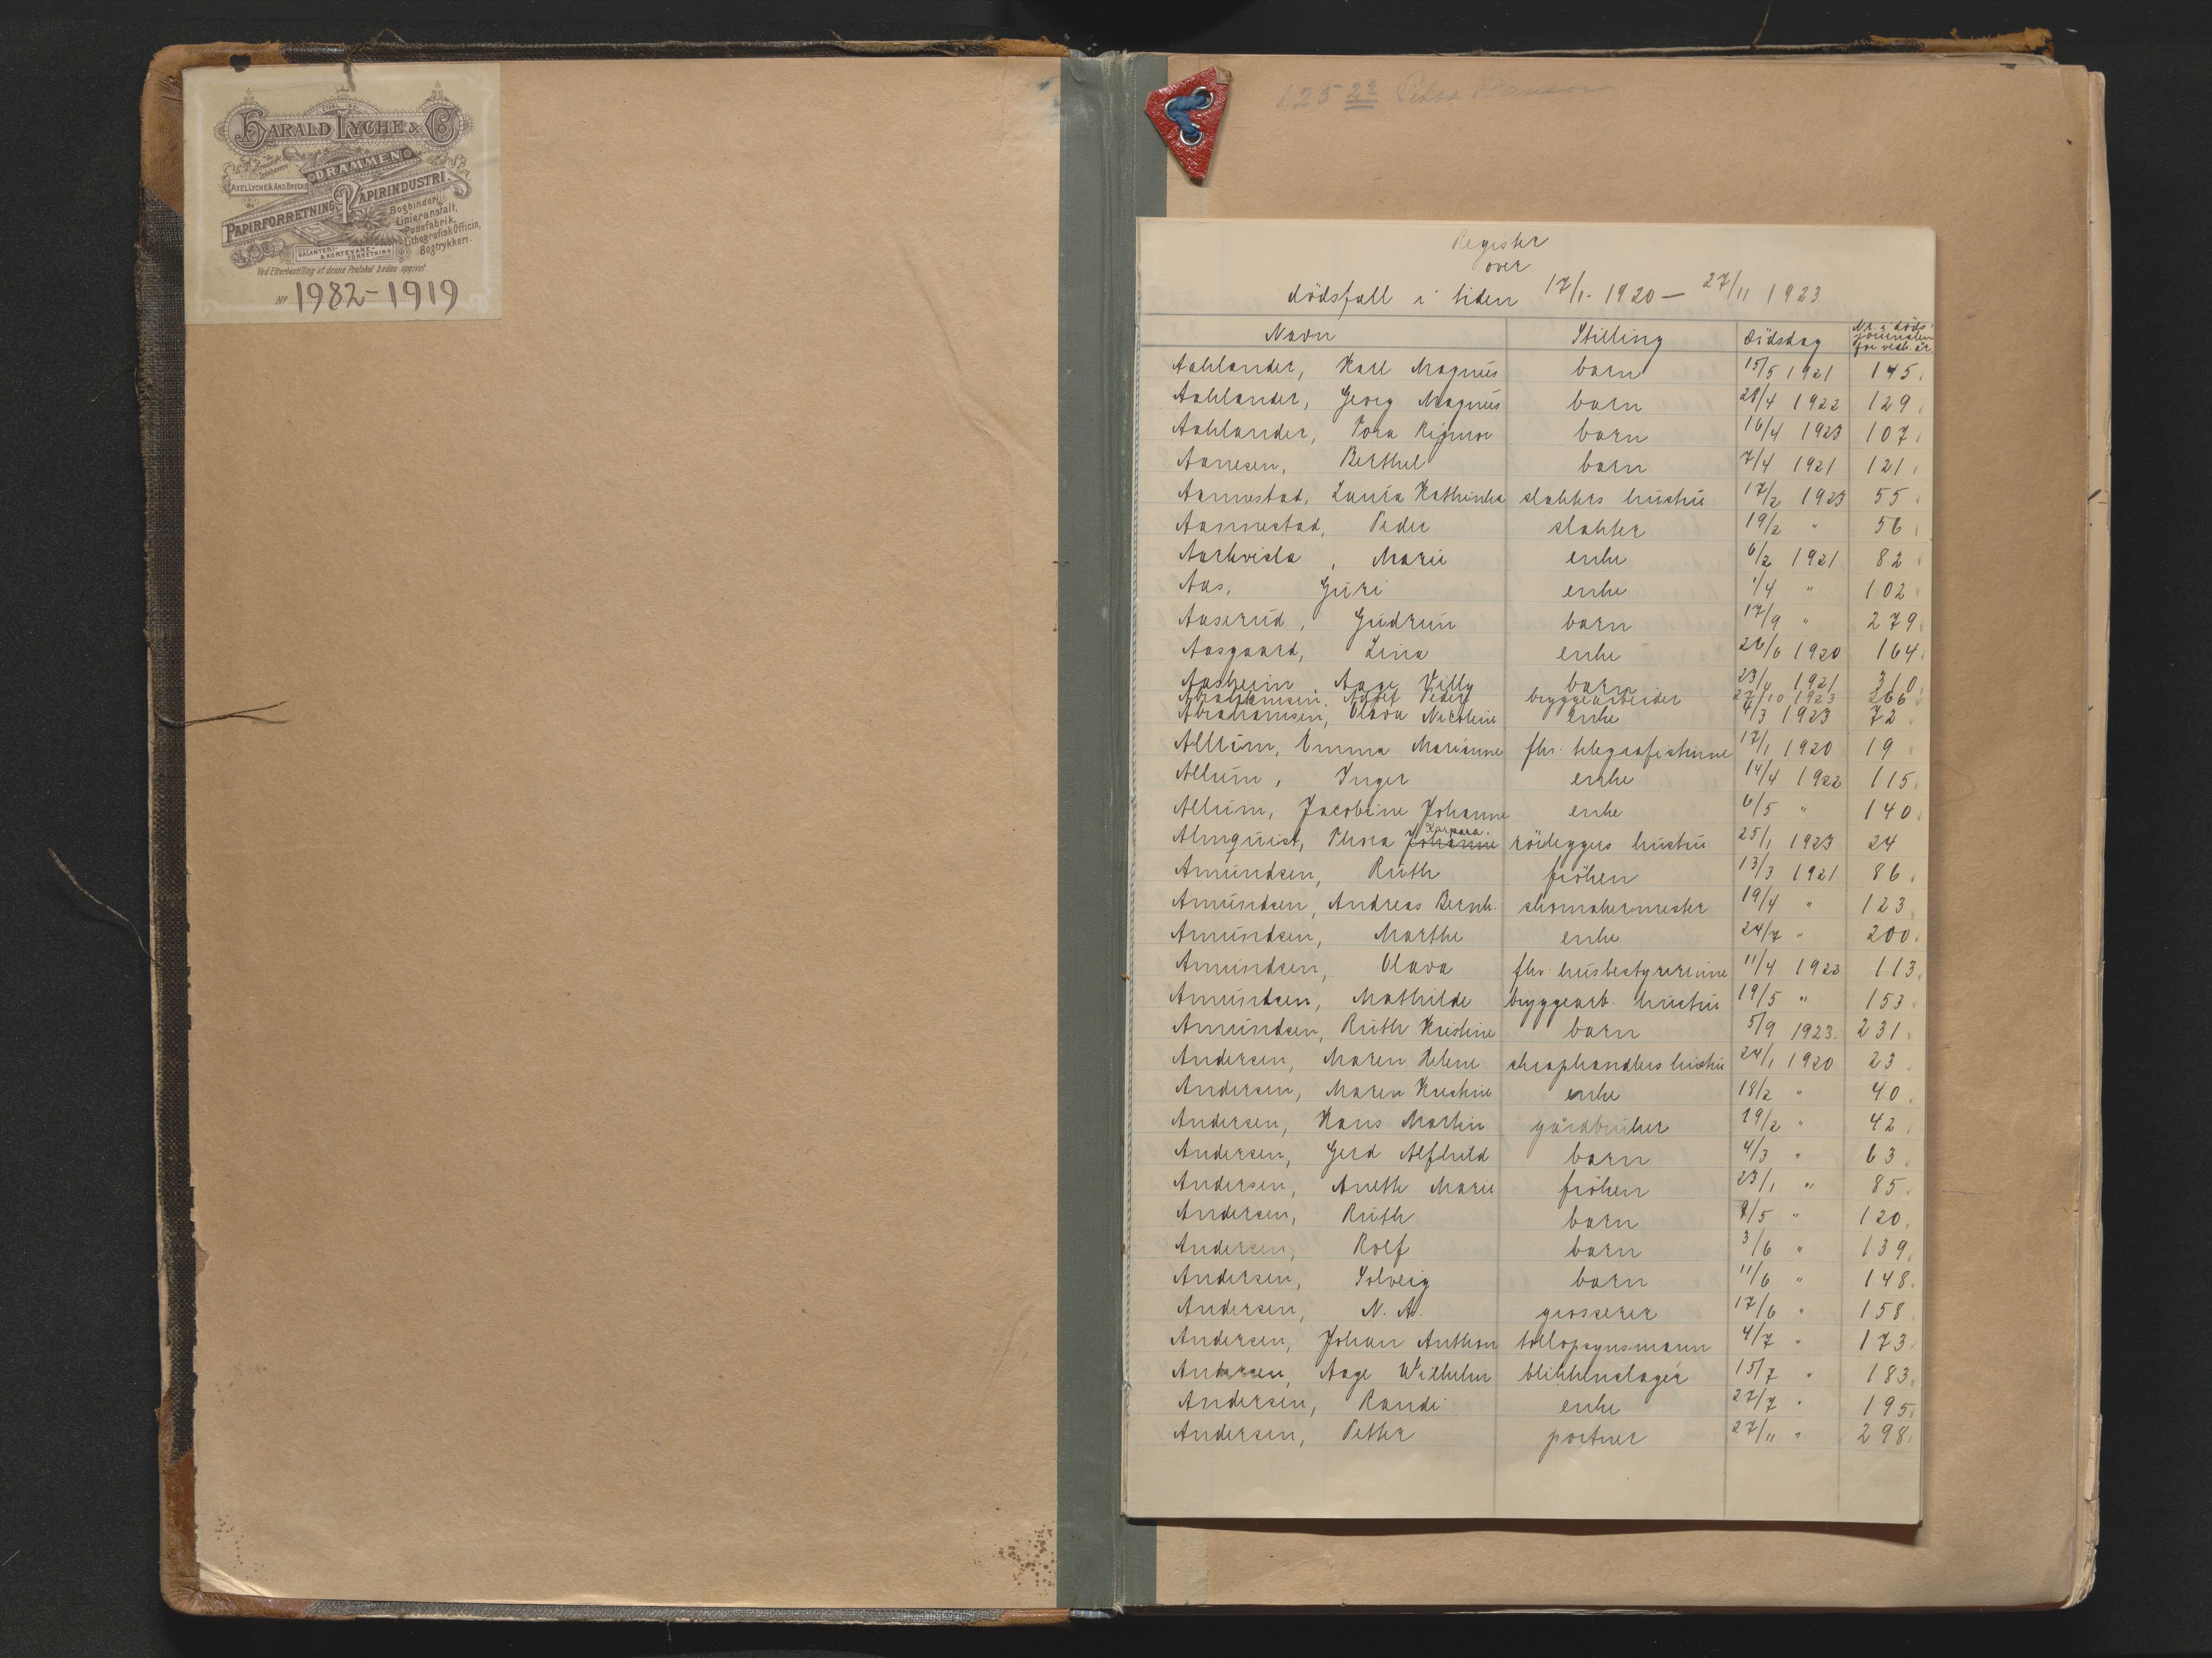 HARALD LYCHE & Co
DRAMMEN
AXEL LYCHE & AND. BRICKE
PAPIRFORRETNING PAPIRINDUSTRI
Bogbinderi,
Linieranstalt,
Posefabrik,
Lithografisk Officin,
Bogtrykkeri.
GALANTERI-
& KORTEVARE-
FORRETNING
Ved Efterbestilling af denne Protokol bedes opgivet
No 1982-1919
125 22
Register
over
dödsfall i tiden 17/1. 1920 – 27/11 1923.
Navn Stilling Dödsdag Nr. i döds-
journalen
for vedk. år
Aahlander, Karl Magnus barn 15/5 1921 145.
Aahlander, Georg Magnus barn 28/4 1922 129.
Aahlander, Tora Rigmor barn 16/4 1923 107.
Aanesen, Berthel barn 7/4 1921 121.
Aannestad, Laura Kathinka slakters hustru 17/2 1923 55.
Aannestad, Peder slakter 19/2 " 56.
Aarkvisla, Marie enke 6/2 1921 82.
Aas, Guri enke 1/4 " 102.
Aaserud, Gudrun barn 17/9 " 279.
Aasgaard, Lina enke 26/6 1920 164.
Aasheim, Aage Villy barn 23/11 1921 310.
Abrahamsen, Adolf Peder bryggearbeider 27/10 1923 266.
Abrahamsen, Olava Nicoline enke 4/3 1923 72.
Allum, Emma Marianne fhv. telegrafistinne 17/1 1920 19.
Allum, Inger enke 14/4 1922 115.
Allum, Jacobine Johanne enke 6/5 " 140.
Almquist, Thora Johanne Karpara. rörleggers hustru 25/1 1923 24
Amundsen, Ruth fröken 13/3 1921 86.
Amundsen, Andreas Bernh. skomakermester 19/4 " 123.
Amundsen, Marthe enke 24/7 " 200.
Amundsen, Olava fhv. husbestyrerinne 11/4 1922 113.
Amundsen, Mathilde bryggearb. hustru 19/5 " 153.
Amundsen, Ruth Kristine barn 5/9 1923. 231.
Andersen, Maren Helene skraphandlers hustru 24/1 1920 23.
Andersen, Maren Kristine enke 18/2 " 40.
Andersen, Hans Martin gårdbruker 19/2 " 42.
Andersen, Gerd Alfhild barn 4/3 " 63.
Andersen, Aneth Marie fröken 23/1 " 85.
Andersen, Ruth barn 8/5 " 120.
Andersen, Rolf barn 3/6 " 139.
Andersen, Solveig barn 11/6 " 148.
Andersen, N. A. grosserer 17/6 " 158.
Andersen, Johan Anthon tollopsynsmann 4/7 " 173.
Andersen, Aage Wilhelm blikkenslager 15/7 " 183.
Andersen, Randi enke 27/7 " 195.
Andersen, Petter portner 27/11 " 298.